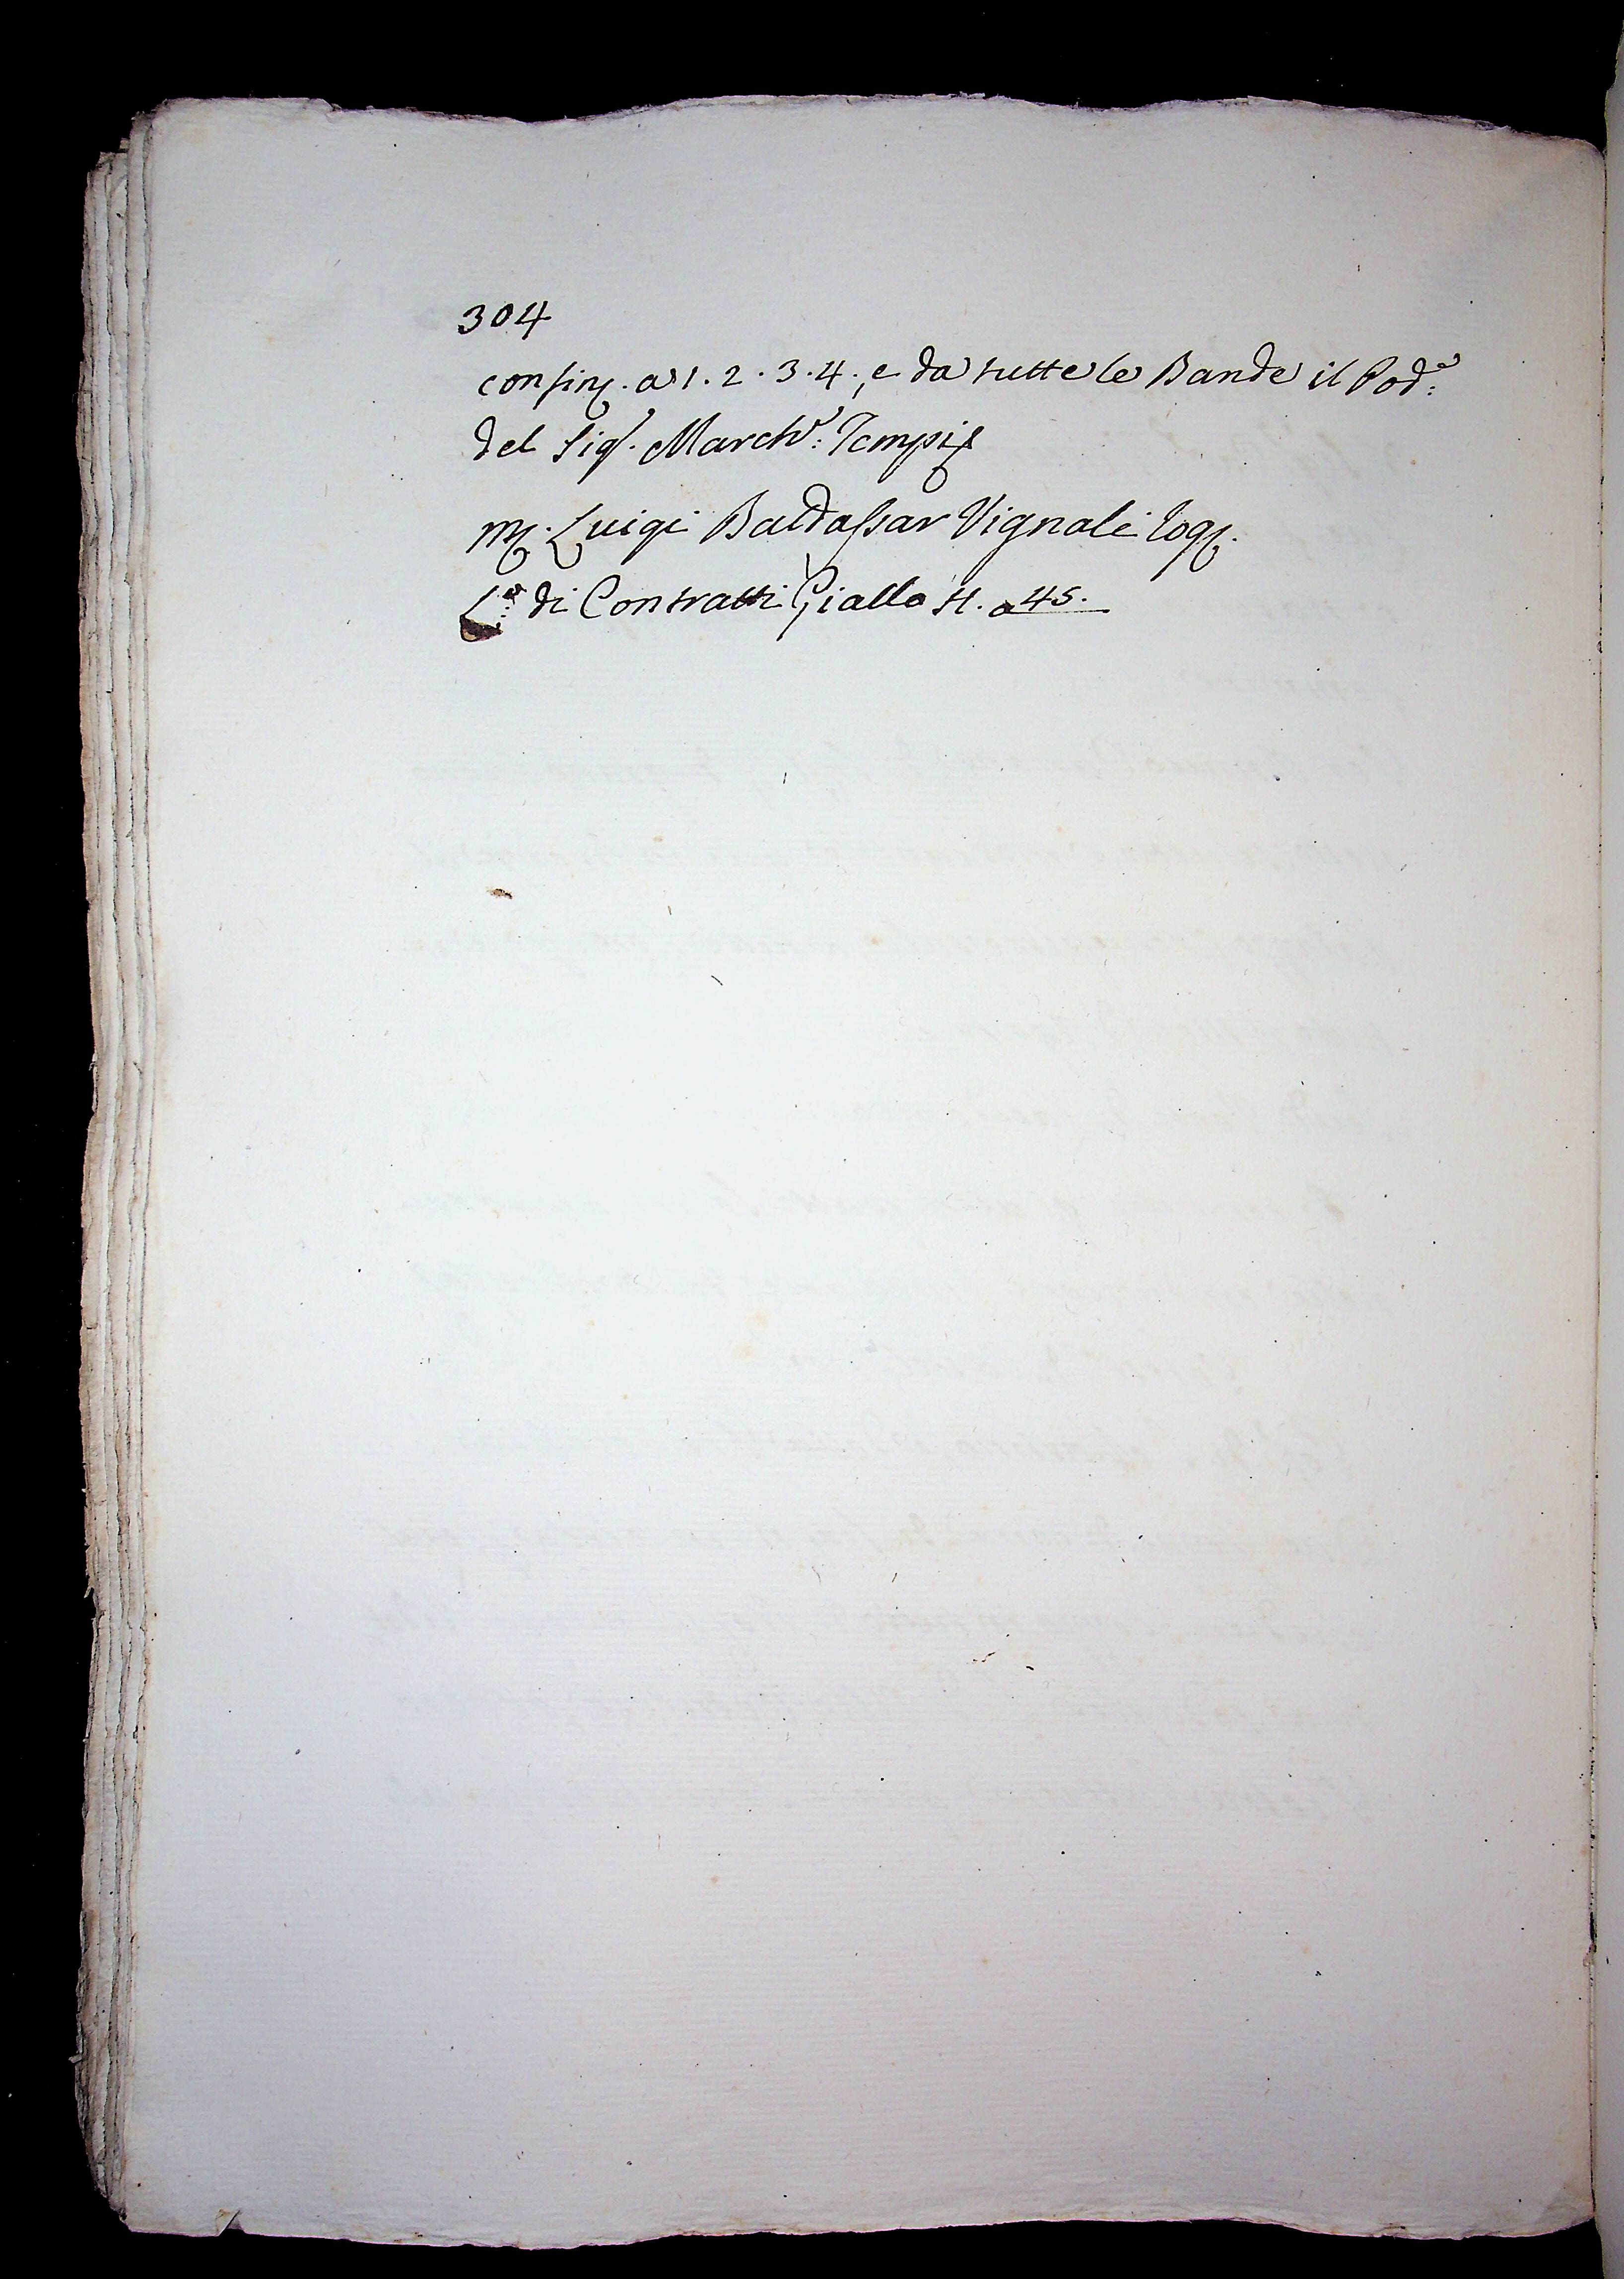 304
confin. a 1. 2. 3. 4., e da tutte le Bande il Pod.e
del Sig. March.e Tempi
m. Luigi Baldassar Vignali Rog.
L.o di Contratti Giallo H. a 45.